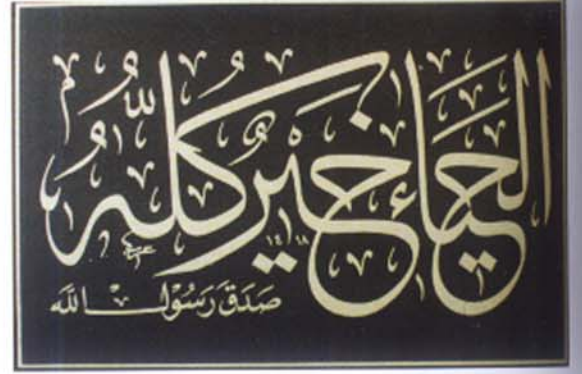 الحَيَاءُ خَيْرٌ كُلُّهُ
١٤١٨
صَدَقَ رَسُولُ اللَّه